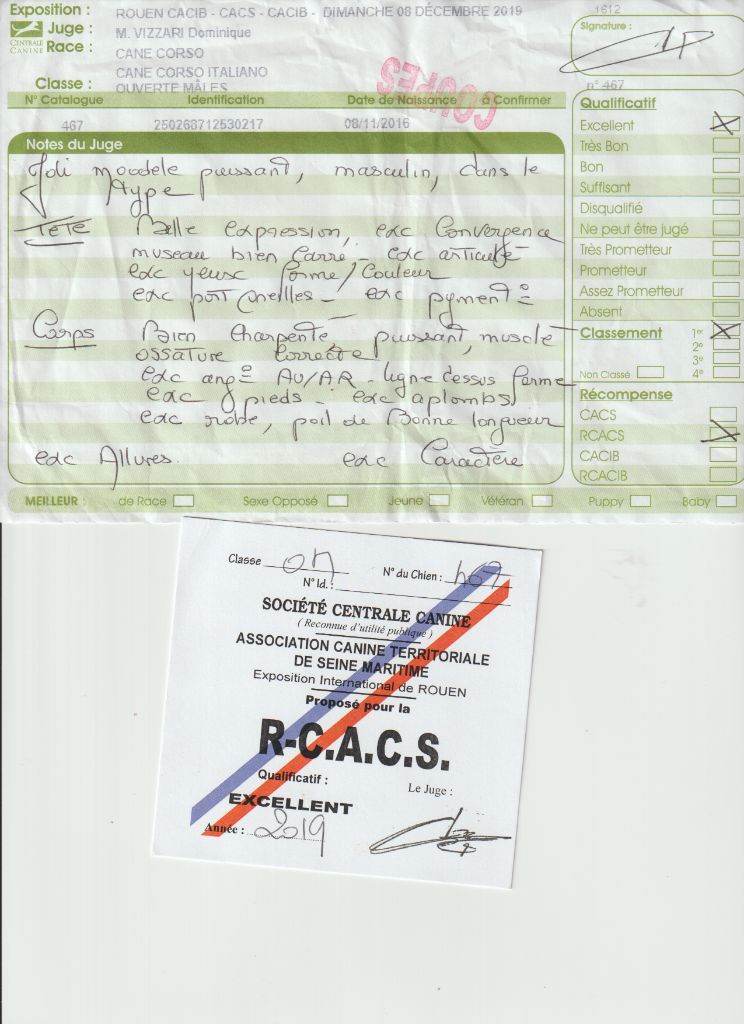 Exposition : ROUEN CACIB - CACS - CACIB - DIMANCHE 08 DÉCEMBRE 2019
1612
Juge : M. VIZZARI Dominique
Signature :
CENTRALE CANINE
Race : CANE CORSO
CANE CORSO ITALIANO
Classe : OUVERTE MÂLES
n° 467
COUPES
N° Catalogue Identification Date de Naissance à Confirmer
467 250268712530217 08/11/2016
Notes du Juge
Joli modele puissant, masculin, dans le
type
TETE Belle expression, exc Convergence
museau bien carré - exc articulé
exc yeux forme/couleur
exc port oreilles - exc pygment°
Corps Bien charpenté, puissant, musclé
ossature correcte
exc ang° AV/AR - ligne dessus ferme
exc pieds - exc aplombs
exc robe, poil de Bonne longueur
exc Allures. exc Caractère
Qualificatif
Excellent
Très Bon
Bon
Suffisant
Disqualifié
Ne peut être jugé
Très Prometteur
Prometteur
Assez Prometteur
Absent
Classement 1er
2e
3e
Non Classé 4e
Récompense
CACS
RCACS
CACIB
RCACIB
MEILLEUR : de Race Sexe Opposé Jeune Vétéran Puppy Baby
Classe OM N° du Chien : 467
N° Id. :
SOCIÉTÉ CENTRALE CANINE
( Reconnue d'utilité publique )
ASSOCIATION CANINE TERRITORIALE
DE SEINE MARITIME
Exposition International de ROUEN
Proposé pour la
R-C.A.C.S.
Qualificatif :
Le Juge :
EXCELLENT
Année : 2019